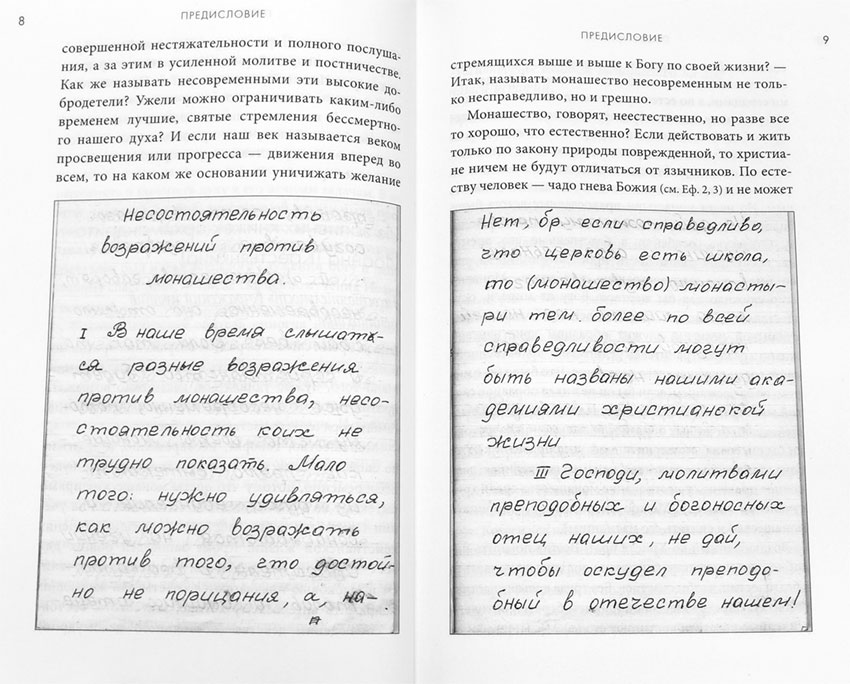 8
ПРЕДИСЛОВИЕ
совершенной нестяжательности и полного послуша-
ния, а за этим в усиленной молитве и постничестве.
Как же называть несовременными эти высокие до-
бродетели? Ужели можно ограничивать каким-либо
временем лучшие, святые стремления бессмертно-
го нашего духа? И если наш век называется веком
просвещения или прогресса — движения вперед во
всем, то на каком же основании уничижать желание
Несостоятельность
возражений против
монашества.
I В наше время слышат-
ся разные возражения
против монашества, несо-
стоятельность коих не
трудно показать. Мало
того: нужно удивляться,
как можно возражать
против того, что достой-
но не порицания, а, на-
ПРЕДИСЛОВИЕ
9
стремящихся выше и выше к Богу по своей жизни? —
Итак, называть монашество несовременным не толь-
ко несправедливо, но и грешно.
Монашество, говорят, неестественно, но разве все
то хорошо, что естественно? Если действовать и жить
только по закону природы поврежденной, то христиа-
не ничем не будут отличаться от язычников. По есте-
ству человек — чадо гнева Божия (см. Еф. 2, 3) и не может
Нет, бр. если справедливо,
что церковь есть школа,
то (монашество) монасты-
ри тем. более по всей
справедливости могут
быть названы нашими ака-
демиями христианской
жизни
III Господи, молитвами
преподобных и богоносных
отец наших, не дай,
чтобы оскудел преподо-
бный в отечестве нашем!